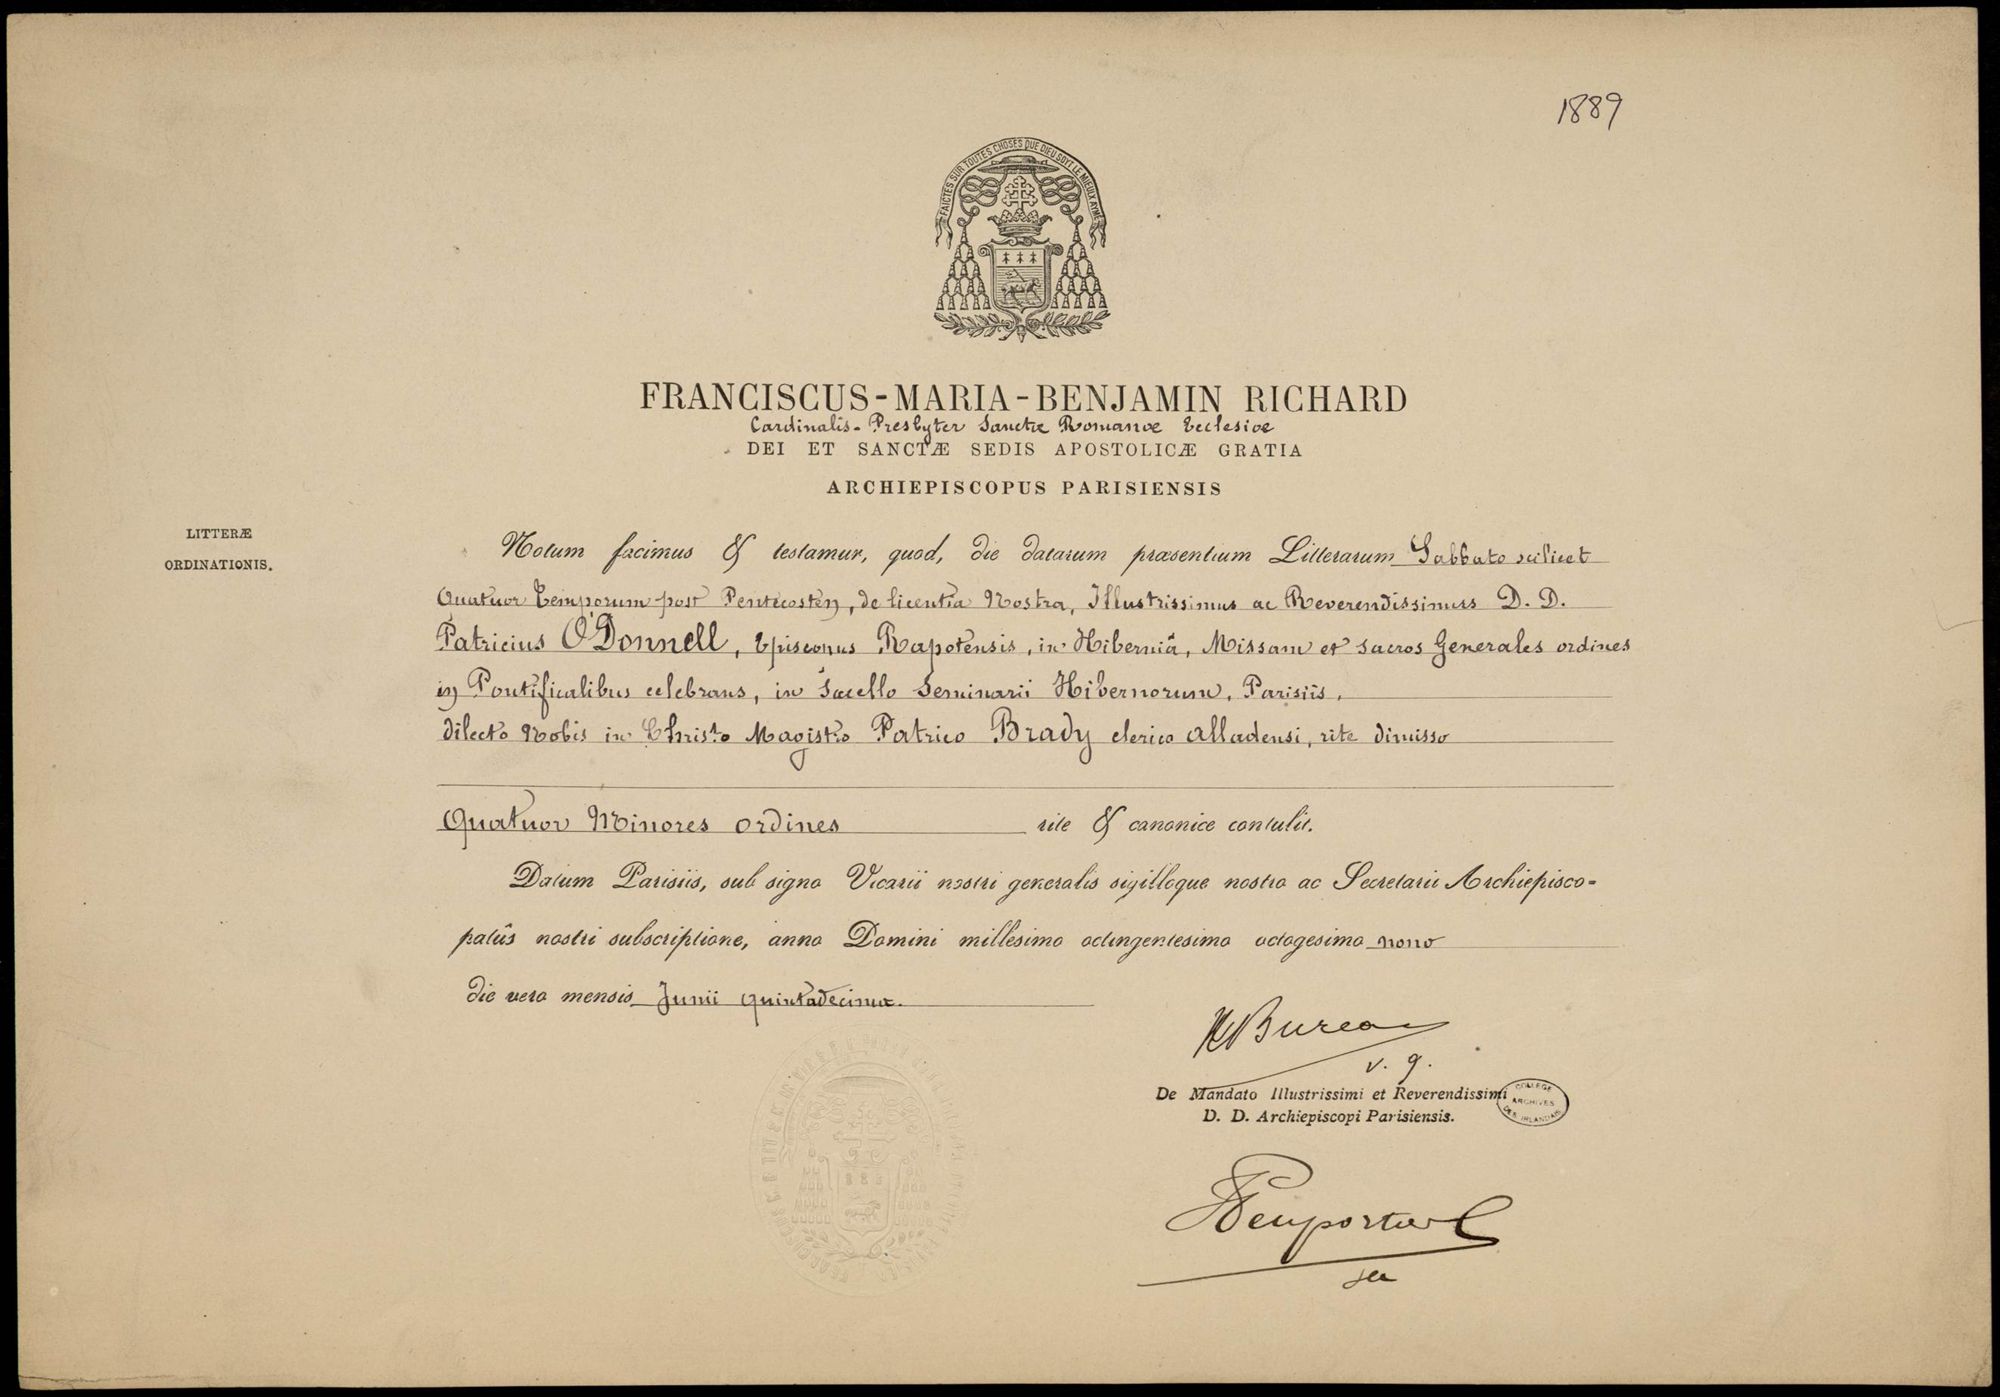 1889
FAICTES SUR TOUTES CHOSES QUE DIEU SOYT LE MIEULX AYMÉ
FRANCISCUS-MARIA-BENJAMIN RICHARD
Cardinalis-Presbyter Sanctæ Romanæ Ecclesiæ
DEI ET SANCTÆ SEDIS APOSTOLICÆ GRATIA
ARCHIEPISCOPUS PARISIENSIS
LITTERÆ
ORDINATIONIS.
Notum facimus & testamur, quod, die datarum præsentium Litterarum Sabbato scilicet
Quatuor Temporum post Pentecosten, de licentia Nostra, Illustrissimus ac Reverendissimus D. D.
Patricius O'Donnell, Episcopus Rapotensis, in Hiberniâ, Missam et sacros Generales ordines
in Pontificalibus celebrans, in Sacello Seminarii Hibernorum, Parisiis,
dilecto Nobis in Christo Magistro Patrico Brady clerico Alladensi, rite dimisso
Quatuor Minores ordines rite & canonice contulit.
Datum Parisiis, sub signo Vicarii nostri generalis sigilloque nostro ac Secretarii Archiepisco=
patûs nostri subscriptione, anno Domini millesimo octingentesimo octogesimo nono
die vero mensis Junii quintadecima.
Bureau
v. g.
De Mandato Illustrissimi et Reverendissimi
D. D. Archiepiscopi Parisiensis.
COLLEGE
ARCHIVES
DES IRLANDAIS